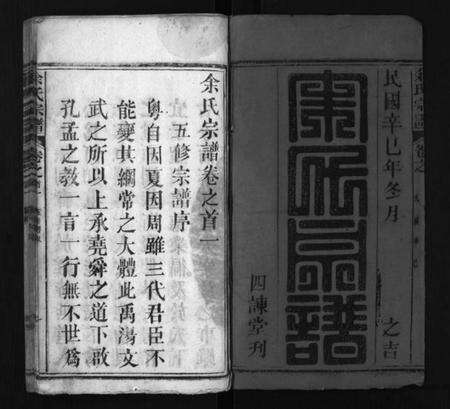 民國辛巳年冬月
之吉
余氏宗譜
四諫堂刊
余氏宗譜卷之首一
五修宗譜序
粵自因夏因周雖三代君臣不
能變其綱常之大體此禹湯文
武之所以上承堯舜之道下啟
孔孟之教一言一行無不世爲
余氏宗譜